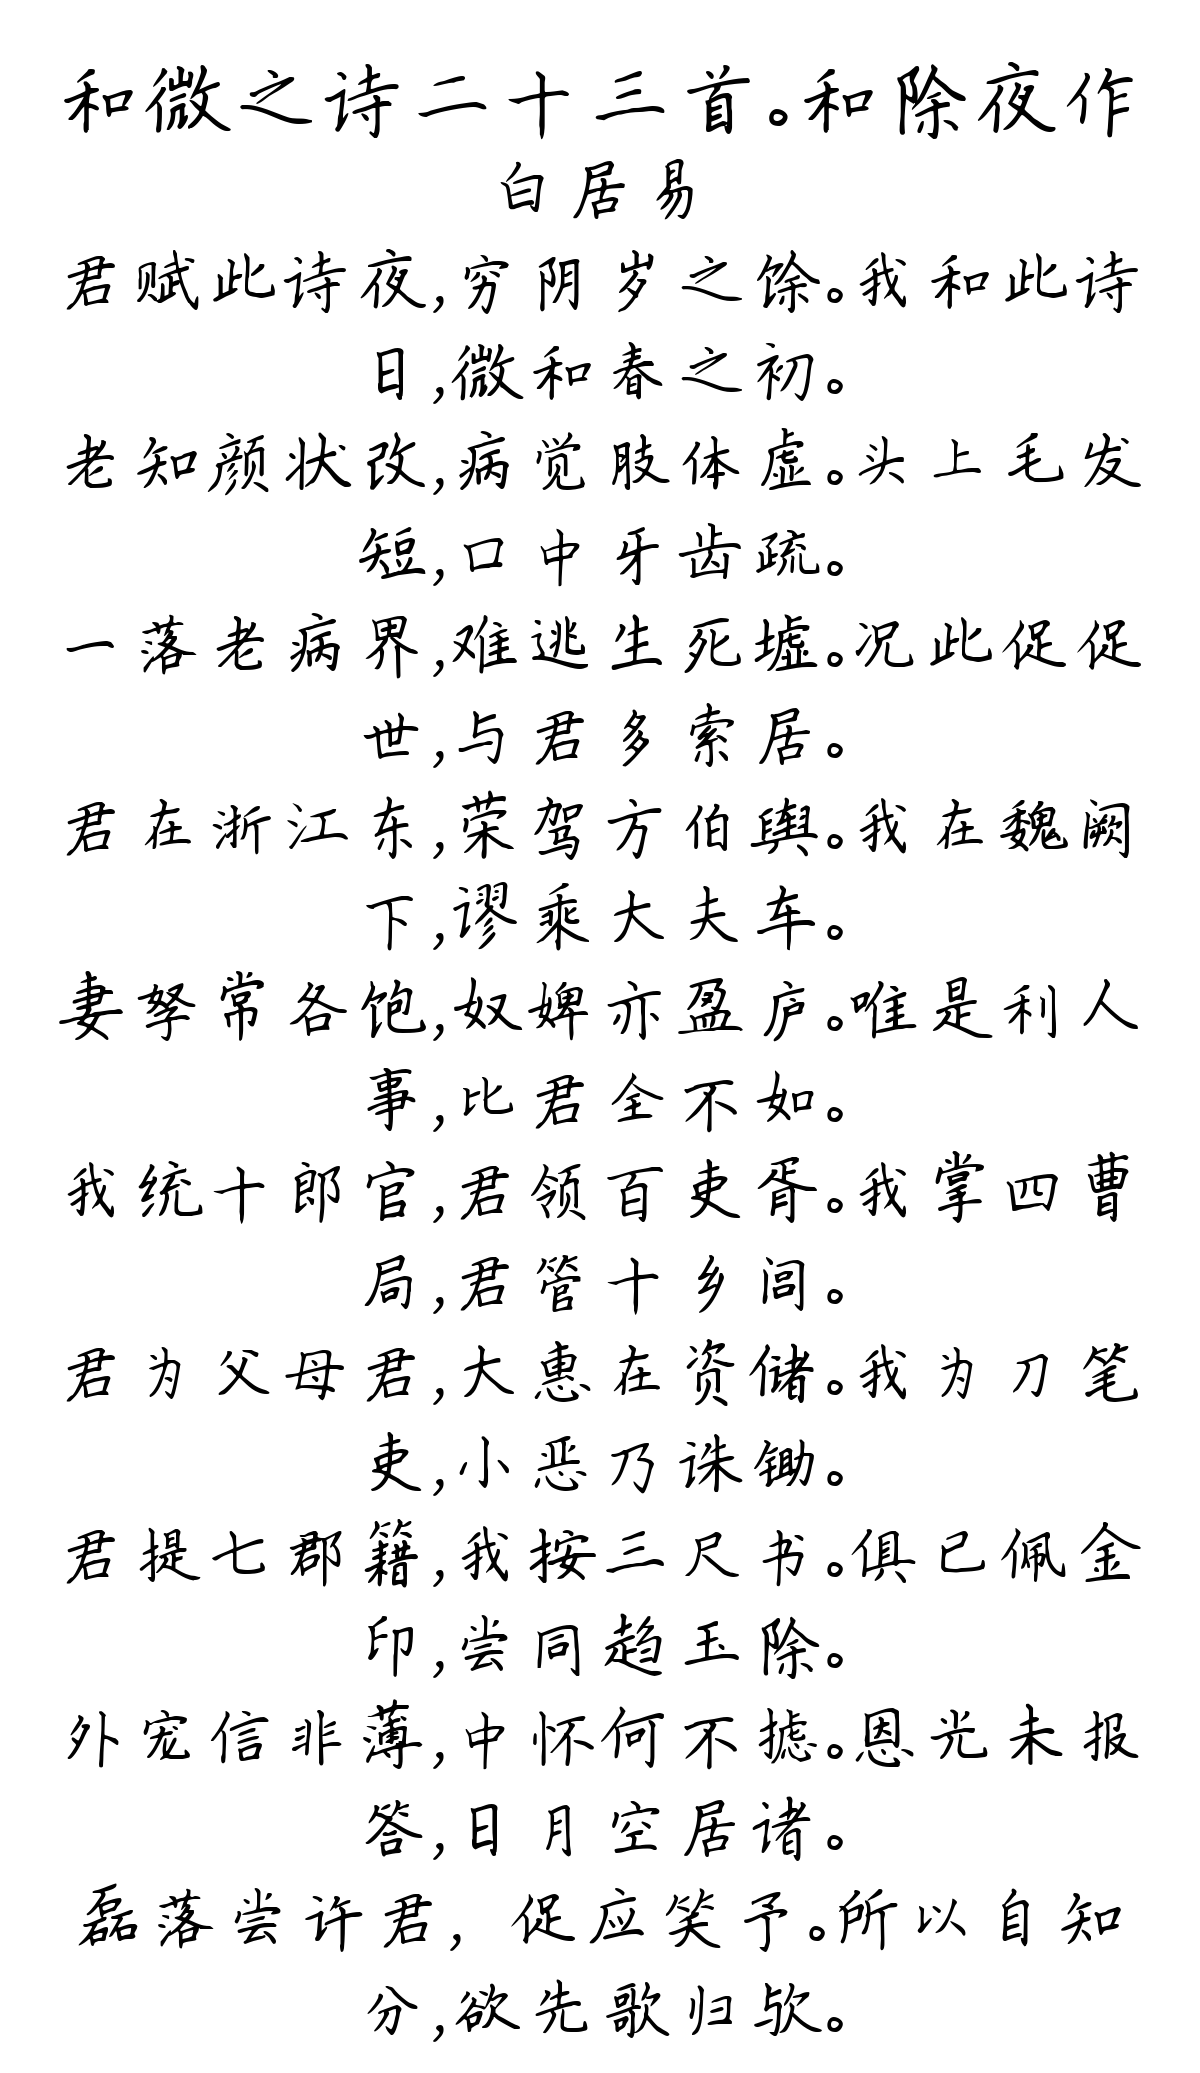 和微之诗二十三首。和除夜作
白居易
君赋此诗夜,穷阴岁之馀。我和此诗
日,微和春之初。
老知颜状改,病觉肢体虚。头上毛发
短,口中牙齿疏。
一落老病界,难逃生死墟。况此促促
世,与君多索居。
君在浙江东,荣驾方伯舆。我在魏阙
下,谬乘大夫车。
妻孥常各饱,奴婢亦盈庐。唯是利人
事,比君全不如。
我统十郎官,君领百吏胥。我掌四曹
局,君管十乡闾。
君为父母君,大惠在资储。我为刀笔
吏,小恶乃诛锄。
君提七郡籍,我按三尺书。俱已佩金
印,尝同趋玉除。
外宠信非薄,中怀何不摅。恩光未报
答,日月空居诸。
磊落尝许君,促应笑予。所以自知
分,欲先歌归欤。